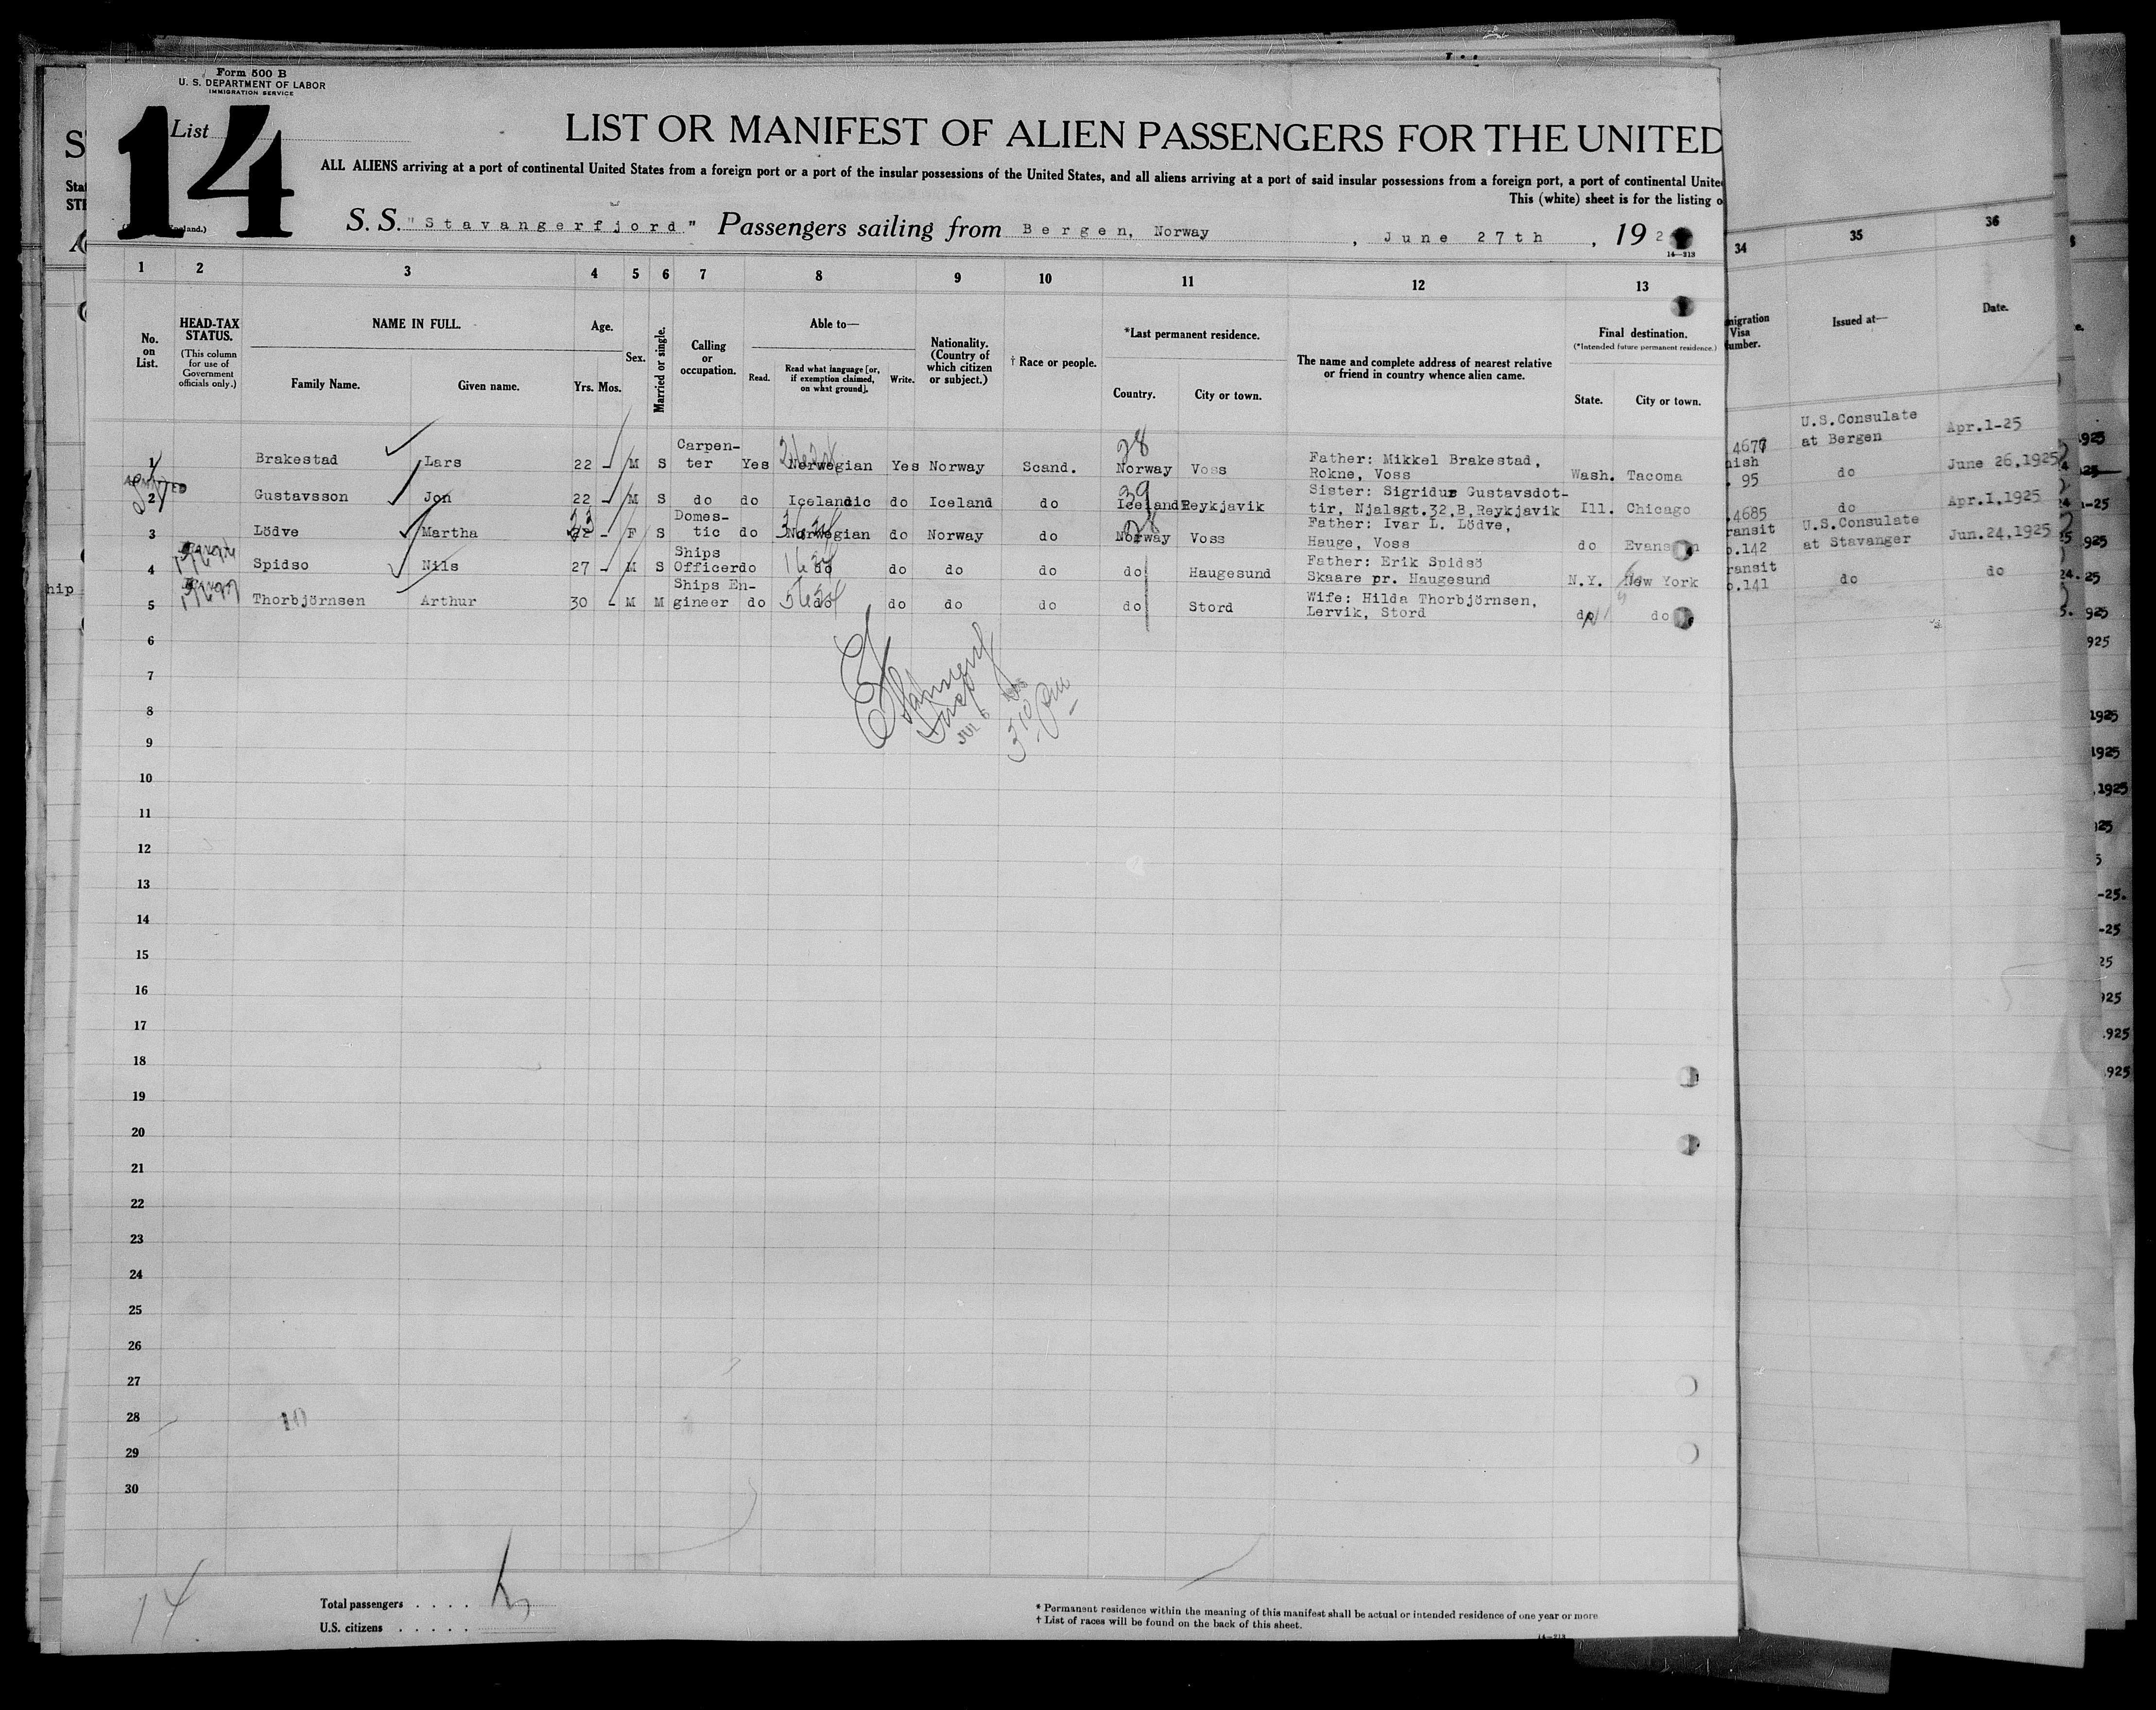 Form 500 B
U. S. DEPARTMENT OF LABOR
IMMIGRATION SERVICE
List
14
LIST OR MANIFEST OF ALIEN PASSENGERS FOR THE UNITED
ALL ALIENS arriving at a port of continental United States from a foreign port or a port of the insular possessions of the United States, and all aliens arriving at a port of said insular possessions from a foreign port, a port of continental Unite
This (white) sheet is for the listing o
S. S. "Stavangerfjord" Passengers sailing from Bergen, Norway, June 27th, 192
14—213
1 2 3 4 5 6 7 8 9 10 11 12 13 34 35 36
No. on List.
HEAD-TAX STATUS.
(This column for use of Government officials only.)
NAME IN FULL.
Family Name. Given name.
Age.
Yrs. Mos.
Sex.
Married or single.
Calling or occupation.
Able to—
Read. Read what language [or, if exemption claimed, on what ground]. Write.
Nationality. (Country of which citizen or subject.)
† Race or people.
*Last permanent residence.
Country. City or town.
The name and complete address of nearest relative or friend in country whence alien came.
Final destination.
(*Intended future permanent residence.)
State. City or town.
migration Visa umber.
Issued at—
Date.
1 Brakestad Lars 22 - M S Carpen-ter Yes Norwegian Yes Norway Scand. 28 Norway Voss Father: Mikkel Brakestad, Rokne, Voss Wash. Tacoma 4677 U.S.Consulate at Bergen Apr.1-25
ADMITTED
2 Gustavsson Jon 22 - M S do do Icelandic do Iceland do 39 Iceland Reykjavik Sister: Sigridur Gustavsdot-tir, Njalsgt.32,B,Reykjavik Ill. Chicago nish 95 do June 26,1925
3 Lödve Martha 23 - F S Domes-tic do Norwegian do Norway do 28 Norway Voss Father: Ivar L. Lödve, Hauge, Voss do Evans 4685 do Apr.1,1925
4 Spidsö Nils 27 - M S Ships Officer do do do do do do Haugesund Father: Erik Spidsö Skaare pr. Haugesund N.Y. New York ransit o.142 U.S.Consulate at Stavanger Jun.24,1925
5 Thorbjörnsen Arthur 30 - M M Ships En-gineer do do do do do do Stord Wife: Hilda Thorbjörnsen, Lervik, Stord do do ransit o.141 do do
6
7
8
9
10
11
12
13
14
15
16
17
18
19
20
21
22
23
24
25
26
27
28
29
30
10
14
Total passengers . . . .
U.S. citizens . . . . .
* Permanent residence within the meaning of this manifest shall be actual or intended residence of one year or more
† List of races will be found on the back of this sheet.